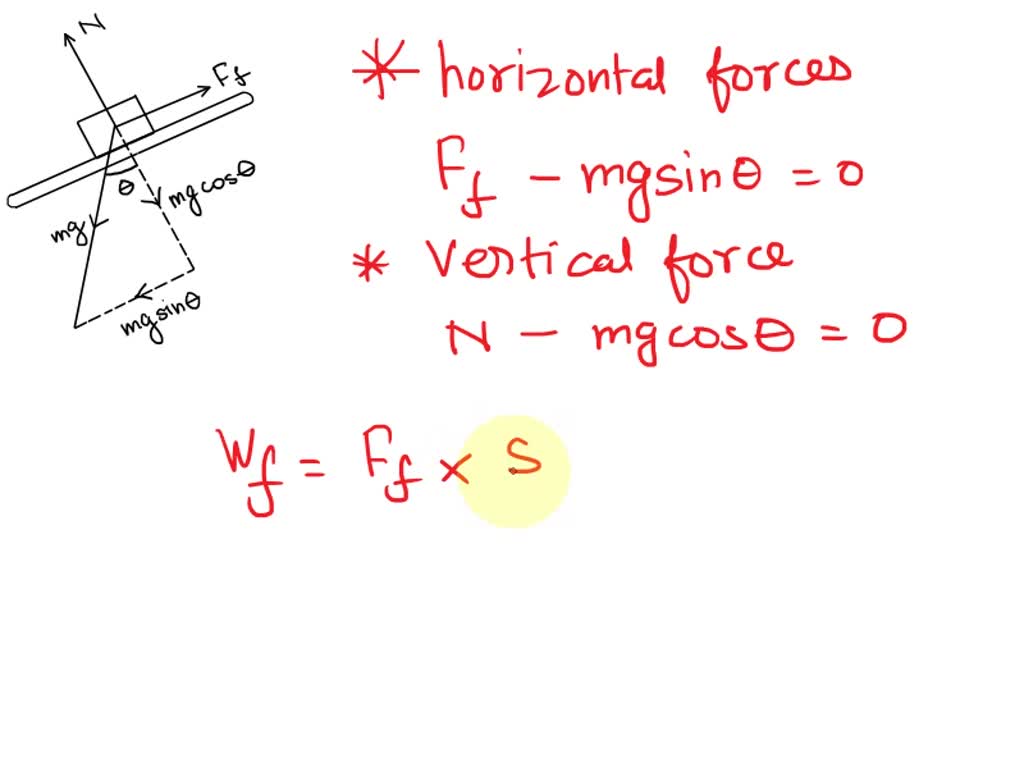 N
F_f
θ
mg cosθ
mg
mg sinθ
* horizontal forces
F_f - mg sinθ = 0
* Vertical force
N - mg cosθ = 0
W_f = F_f × S